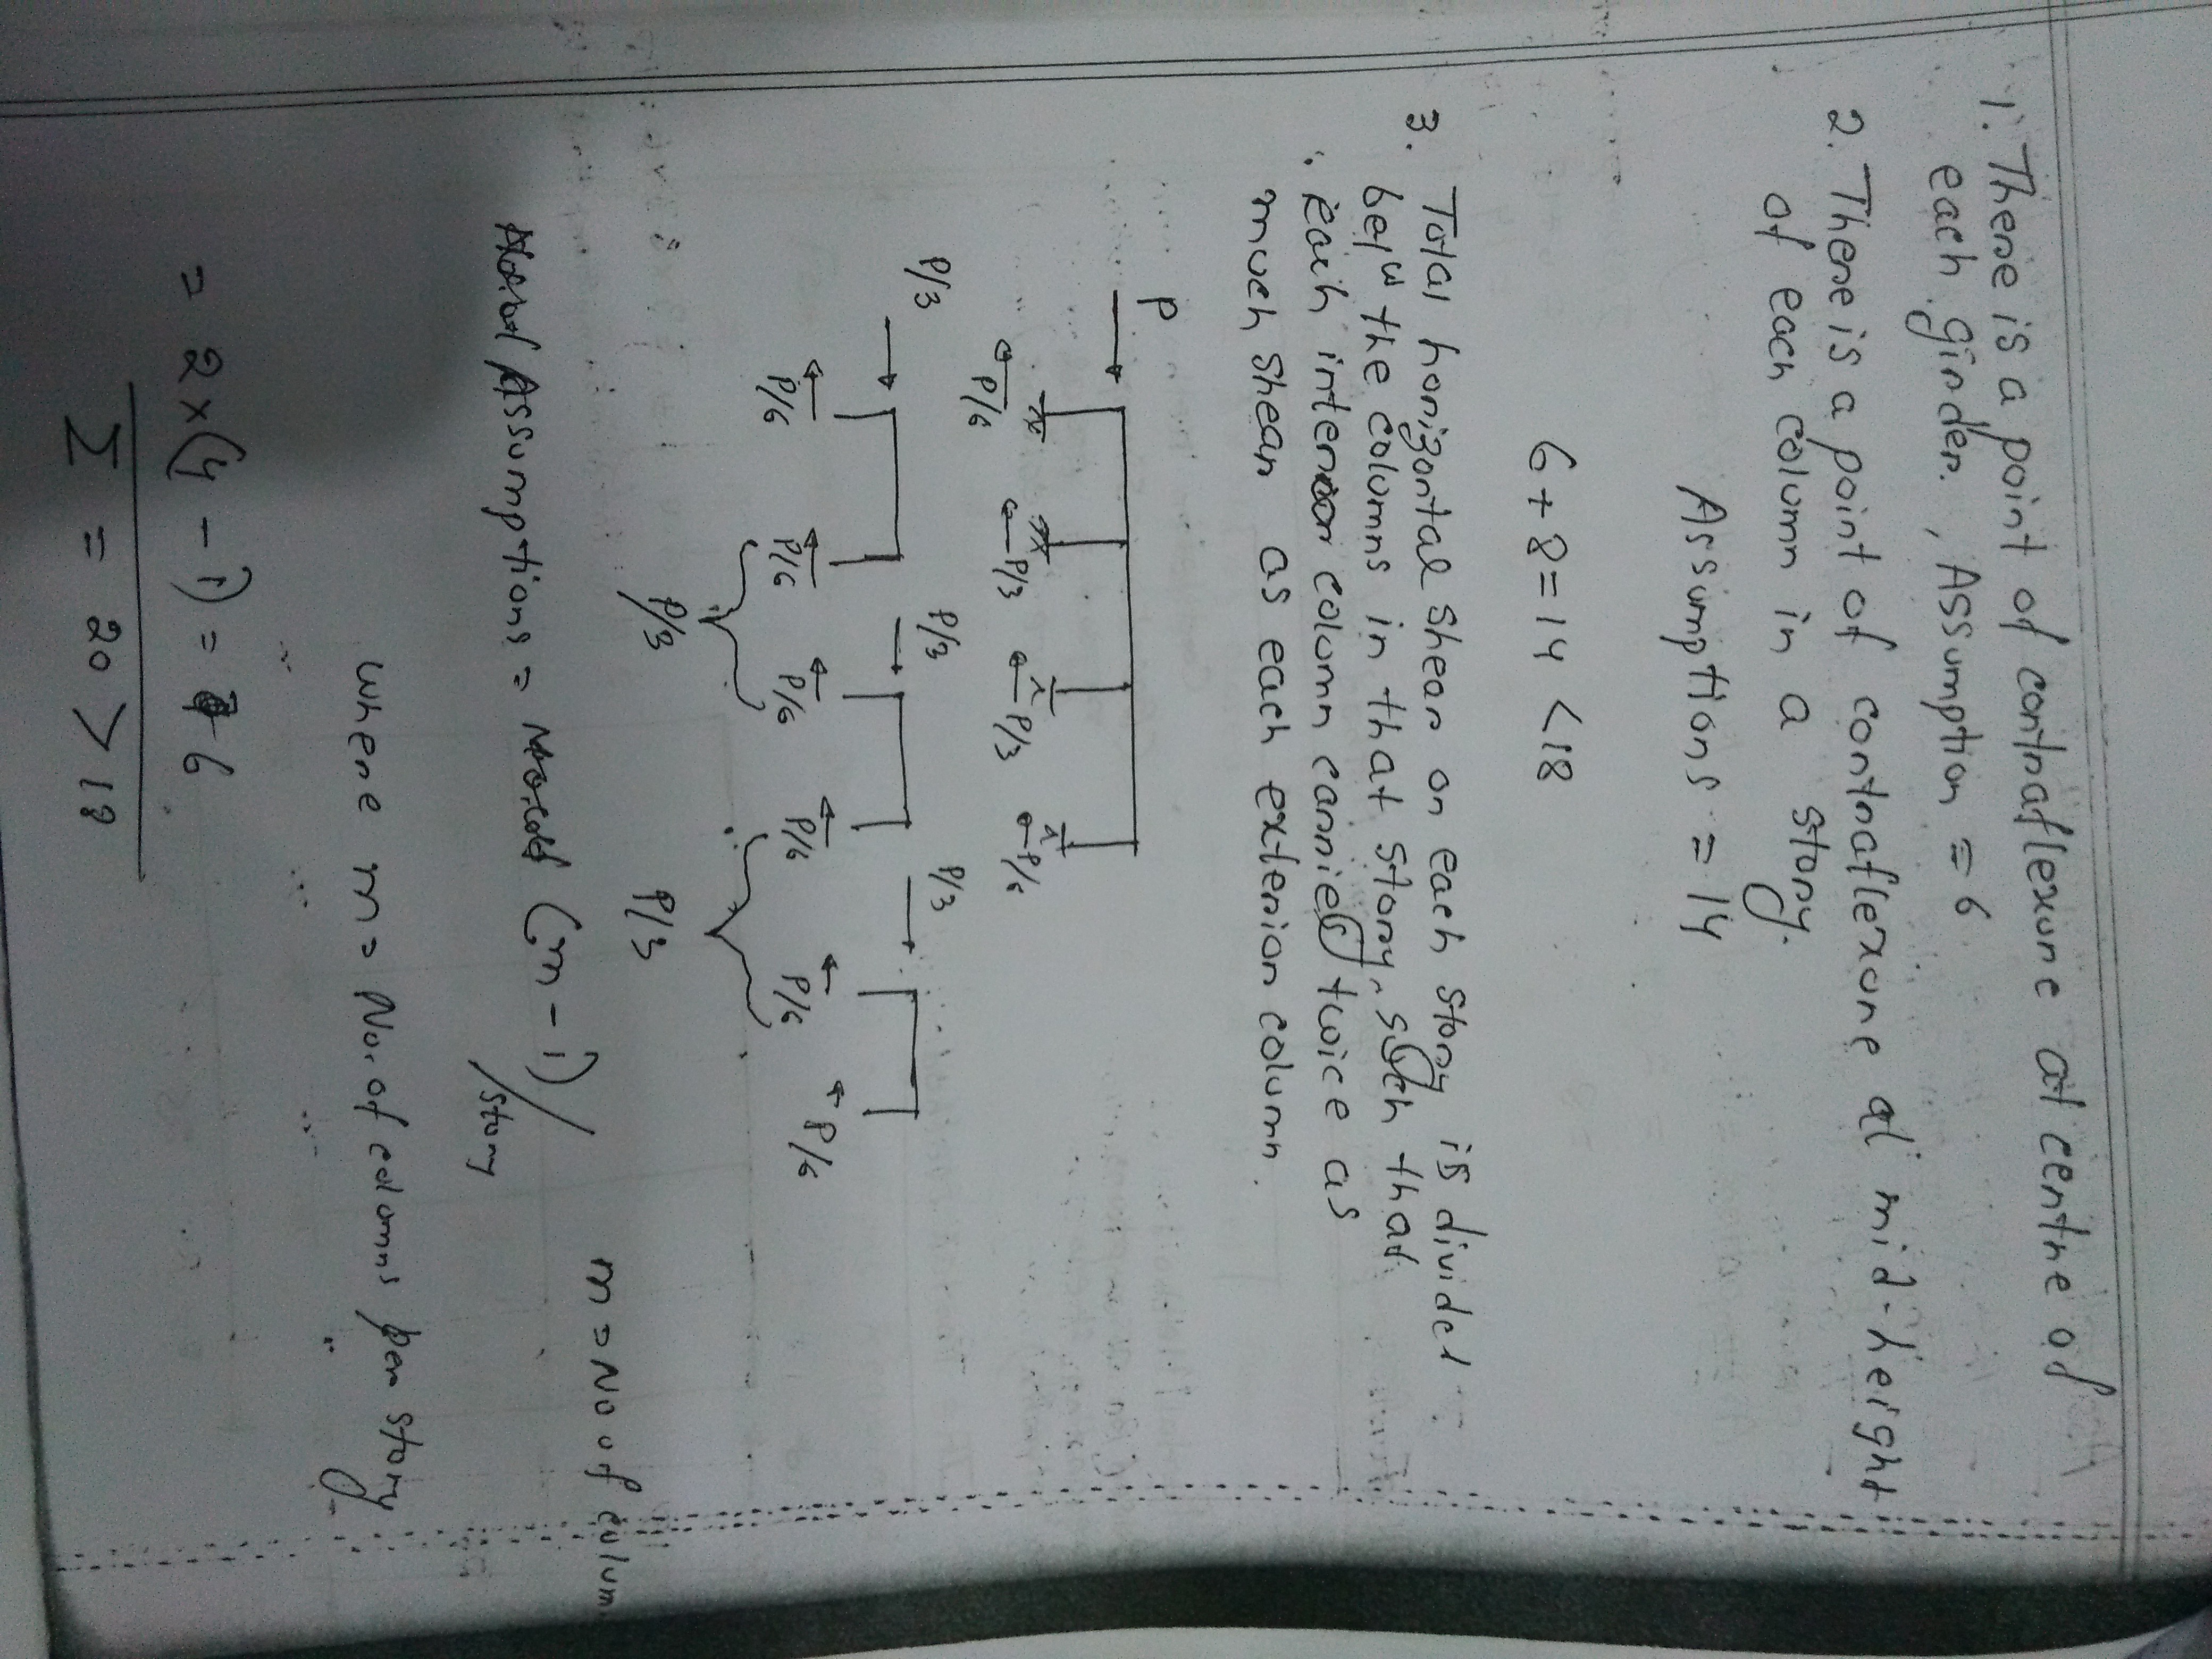 1. There is a point of contraflexure at centre of
each girder. , Assumption = 6
2. There is a point of contraflexure at mid-height
of each column in a story.
Assumptions = 14
6 + 8 = 14 < 18
3. Total horizontal shear on each story is divided
betw the columns in that story, such that
each interior column carries twice as
much shear as each exterior column.
P
P/6 P/3 P/3 P/6
P/3 P/3 P/3
P/6 P/6 P/6 P/6 P/6 P/6
P/3 P/3
m = No of colum
Assumptions = (m - 1)/story
where m = No. of columns per story
= 2 x (4 - 1) = 6
Σ = 20 > 18